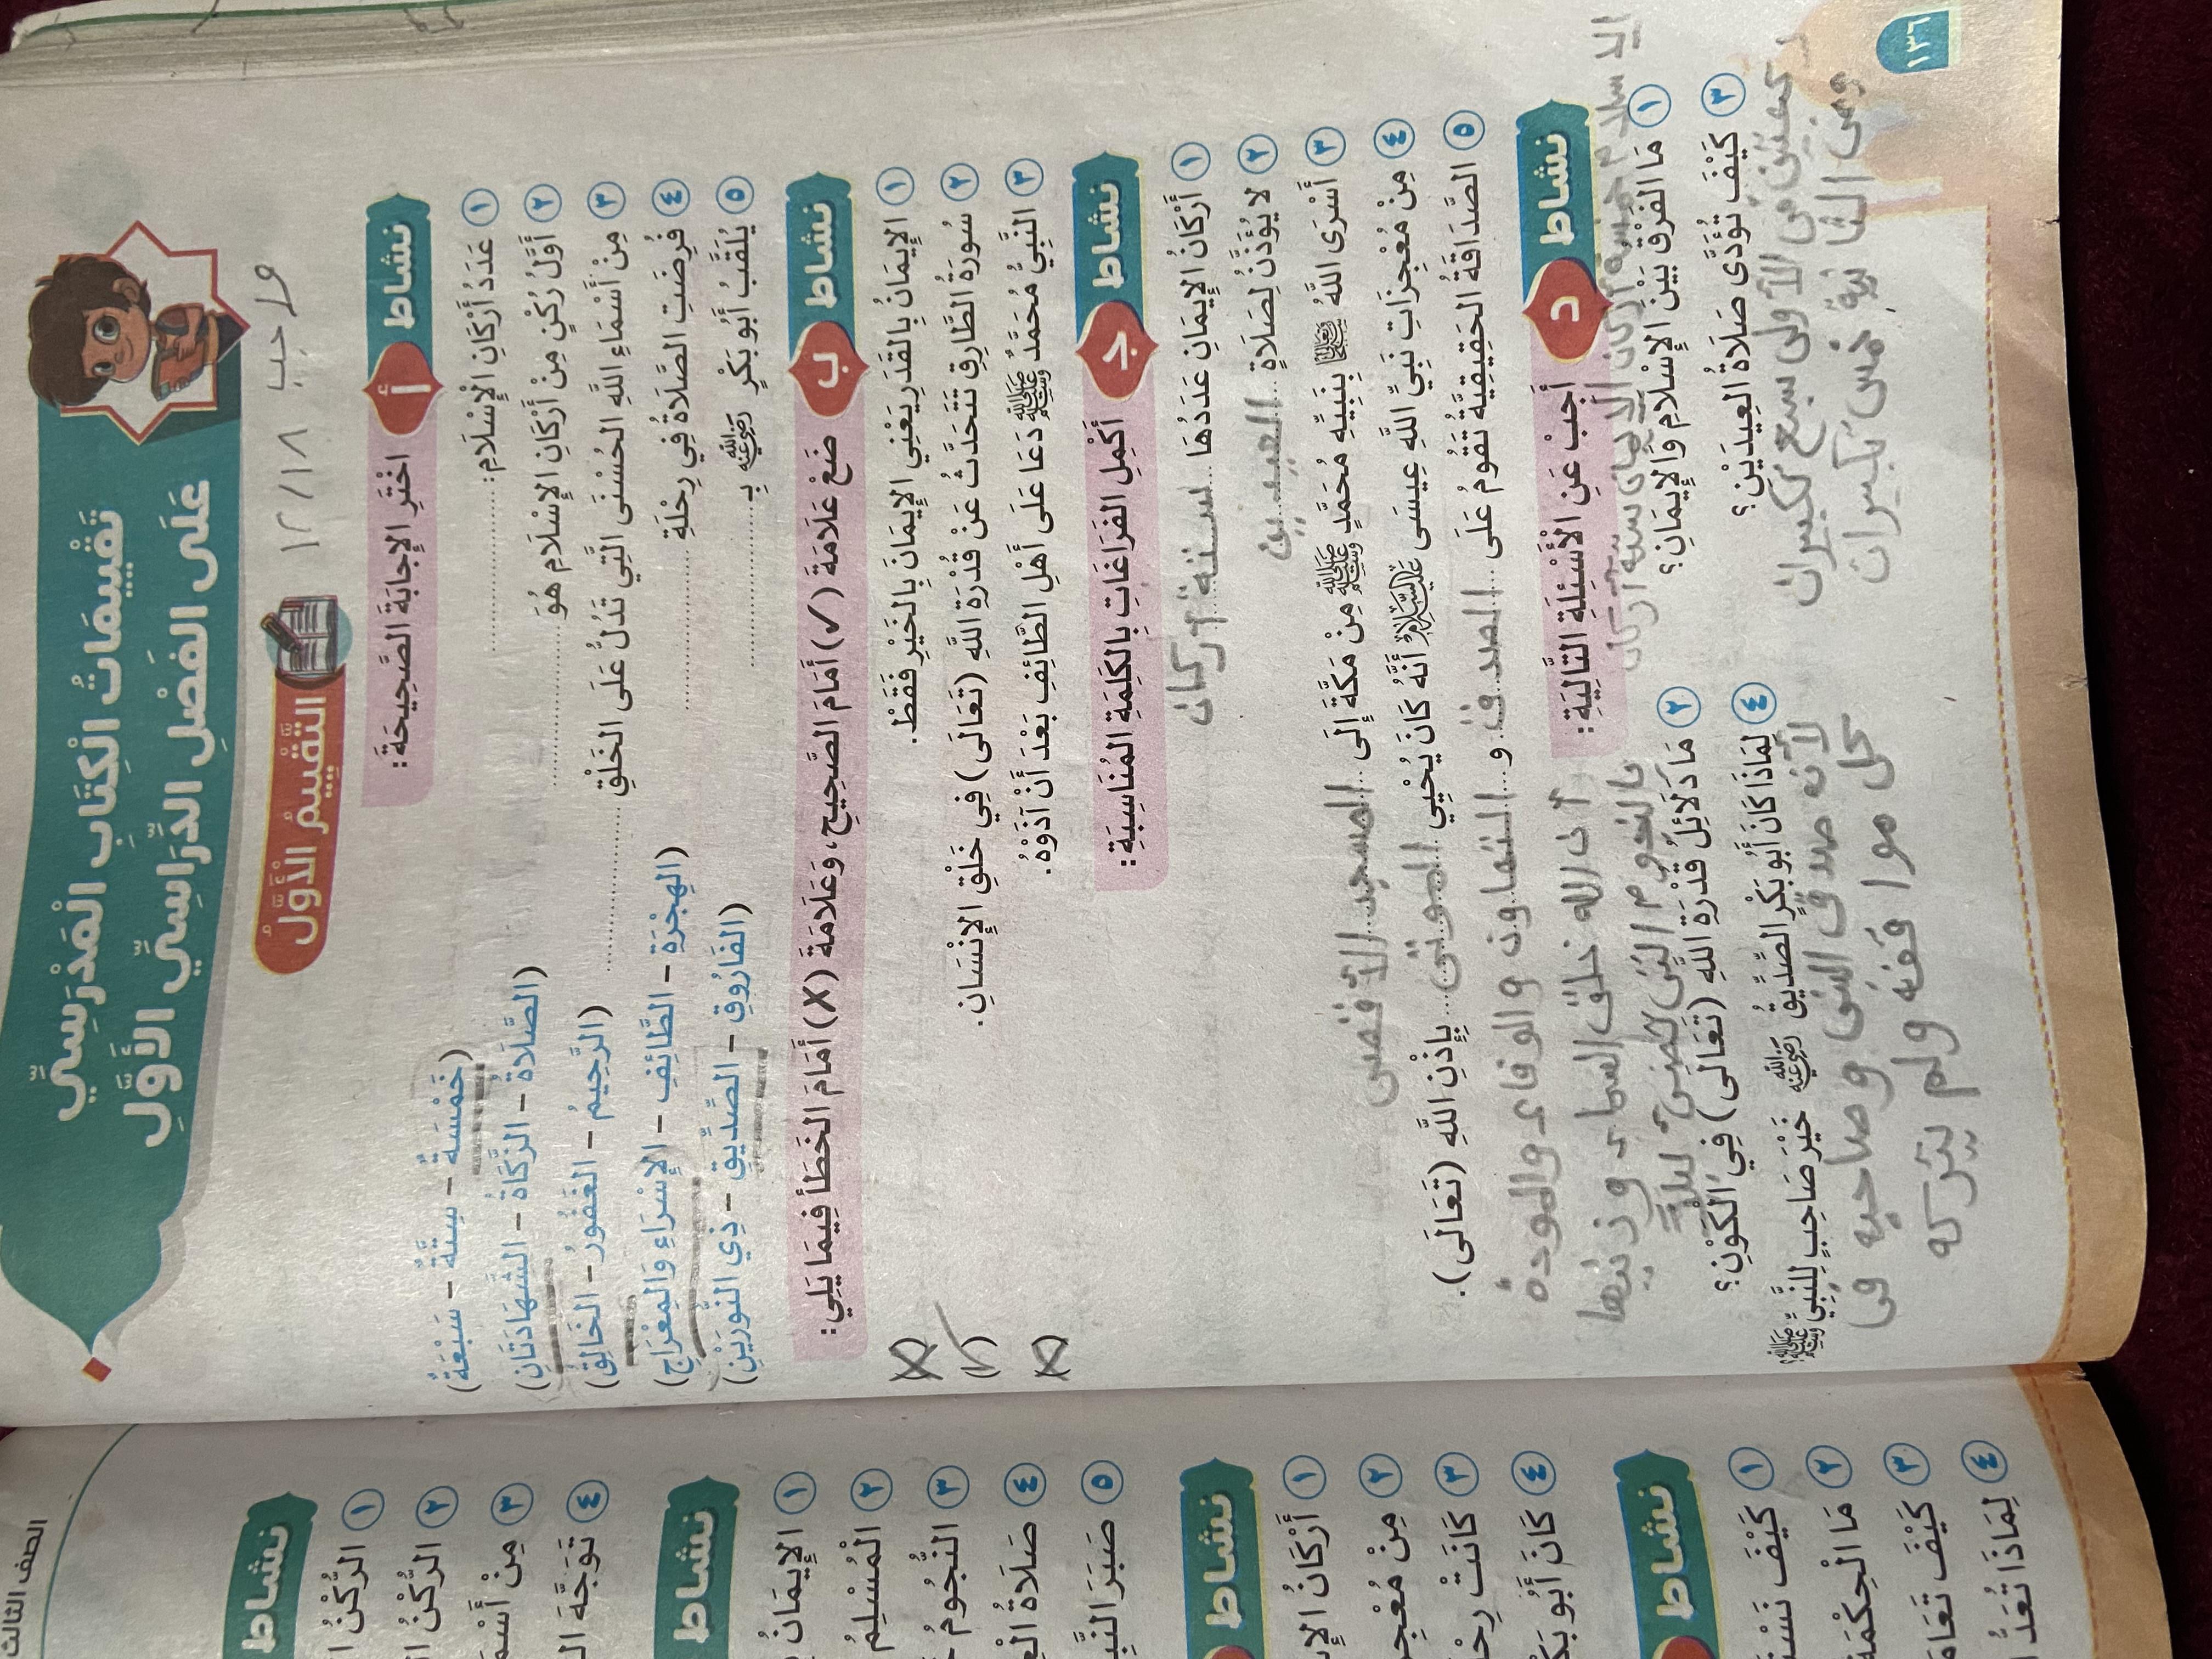 تَقْيِيمَاتُ الْكِتَابِ الْمَدْرَسِيِّ
عَلَى الفَصْلِ الدِّرَاسِيِّ الأَوَّلِ
التَّقْيِيمُ الأَوَّلُ
واجب ١٢/١٨
نشاط أ اخْتَرِ الإِجَابَةَ الصَّحِيحَةَ:
١ عَدَدُ أَرْكَانِ الْإِسْلَامِ: .................... (خَمْسَةٌ - سِتَّةٌ - سَبْعَةٌ)
٢ أَوَّلُ رُكْنٍ مِنْ أَرْكَانِ الإِسْلَامِ هُوَ .................... (الصَّلَاةُ - الزَّكَاةُ - الشَّهَادَتَانِ)
٣ مِنْ أَسْمَاءِ اللَّهِ الحُسْنَى الَّتِي تَدُلُّ عَلَى الخَلْقِ .................... (الرَّحِيمُ - الغَفُورُ - الخَالِقُ)
٤ فُرِضَتِ الصَّلَاةُ فِي رِحْلَةِ .................... (الهِجْرَةِ - الطَّائِفِ - الإِسْرَاءِ وَالمِعْرَاجِ)
٥ يُلَقَّبُ أَبُو بَكْرٍ رَضِيَ اللَّهُ عَنْهُ بِـ .................... (الفَارُوقِ - الصِّدِّيقِ - ذِي النُّورَيْنِ)
نشاط ب ضَعْ عَلَامَةَ (✓) أَمَامَ الصَّحِيحِ، وَعَلَامَةَ (X) أَمَامَ الخَطَأِ فِيمَا يَلِي:
١ الإِيمَانُ بِالقَدَرِ يَعْنِي الإِيمَانَ بِالخَيْرِ فَقَطْ. (X)
٢ سُورَةُ الطَّارِقِ تَتَحَدَّثُ عَنْ قُدْرَةِ اللَّهِ (تَعَالَى) فِي خَلْقِ الإِنْسَانِ. (✓)
٣ النَّبِيُّ مُحَمَّدٌ ﷺ دَعَا عَلَى أَهْلِ الطَّائِفِ بَعْدَ أَنْ آذَوْهُ. (X)
نشاط جـ أَكْمِلِ الفَرَاغَاتِ بِالكَلِمَةِ المُنَاسِبَةِ:
١ أَرْكَانُ الإِيمَانِ عَدَدُهَا ... ستة أركان
٢ لا يُؤَذَّنُ لِصَلَاةِ ... العيدين
٣ أَسْرَى اللَّهُ ﷻ بِنَبِيِّهِ مُحَمَّدٍ ﷺ مِنْ مَكَّةَ إِلَى ... المسجد الأقصى
٤ مِنْ مُعْجِزَاتِ نَبِيِّ اللَّهِ عِيسَى عَلَيْهِ السَّلَامُ أَنَّهُ كَانَ يُحْيِي الموتى ... بِإِذْنِ اللَّهِ (تَعَالَى).
٥ الصَّدَاقَةُ الحَقِيقِيَّةُ تَقُومُ عَلَى ... الصدق ... و ... التعاون والوفاء والمودة
نشاط د أَجِبْ عَنِ الْأَسْئِلَةِ التَّالِيَةِ:
الاسلام خمسة أركان الايمان ستة أركان
١ مَا الفَرْقُ بَيْنَ الإِسْلَامِ وَالإِيمَانِ؟
أن الله خلق السماء وزينها
بالنجوم التى تضىء ليلاً
٢ مَا دَلَائِلُ قُدْرَةِ اللَّهِ (تَعَالَى) فِي الْكَوْنِ؟
٣ كَيْفَ تُؤَدَّى صَلَاةُ العِيدَيْنِ؟
ركعتين فى الأولى سبع تكبيرات
وفى الثانية خمس تكبيرات
٤ لِمَاذَا كَانَ أَبُو بَكْرٍ الصِّدِّيقُ رَضِيَ اللَّهُ عَنْهُ خَيْرَ صَاحِبٍ لِلنَّبِيِّ ﷺ؟
لأنه صدق النبى وصاحبه فى
كل مواقفه ولم يتركه
١٣٦
الصف الثالث
نشاط
١ الرُّكْنُ
٢ الرُّكْنُ
٣ مِنْ أَسْمَ
٤ تَوَجَّهَ
نشاط
١ الإِيمَانُ
٢ الْمُسْلِمُ
٣ النُّجُومُ
٤ صَلَاةُ
٥ صَبَرَ
نشاط
١ أَرْكَانُ
٢ مِنْ مُعْجِ
٣ كَانَتْ رِحْ
٤ كَانَ أَبُو بَكْ
نشاط
١ كَيْفَ نَسْتَ
٢ مَا الْحِكْمَة
٣ كَيْفَ تَعَامَ
٤ لِمَاذَا تُعَدُّ